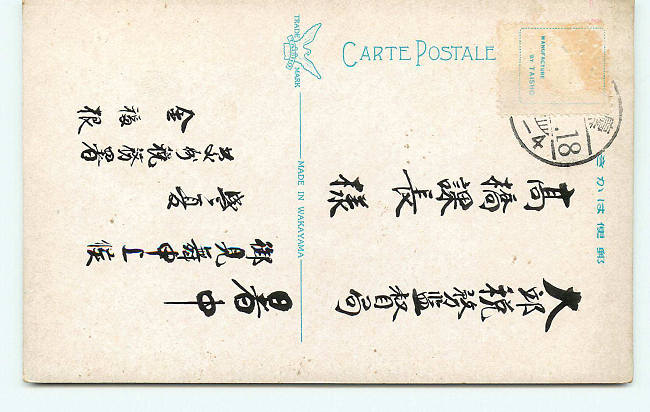 CARTE POSTALE
TRADE MARK
MADE IN WAKAYAMA
MANUFACTURE
BY TAISHO
郵便はかき
18
大邱税務監督局
高橋課長 様
暑中
御見舞申上候
税務署
金福根